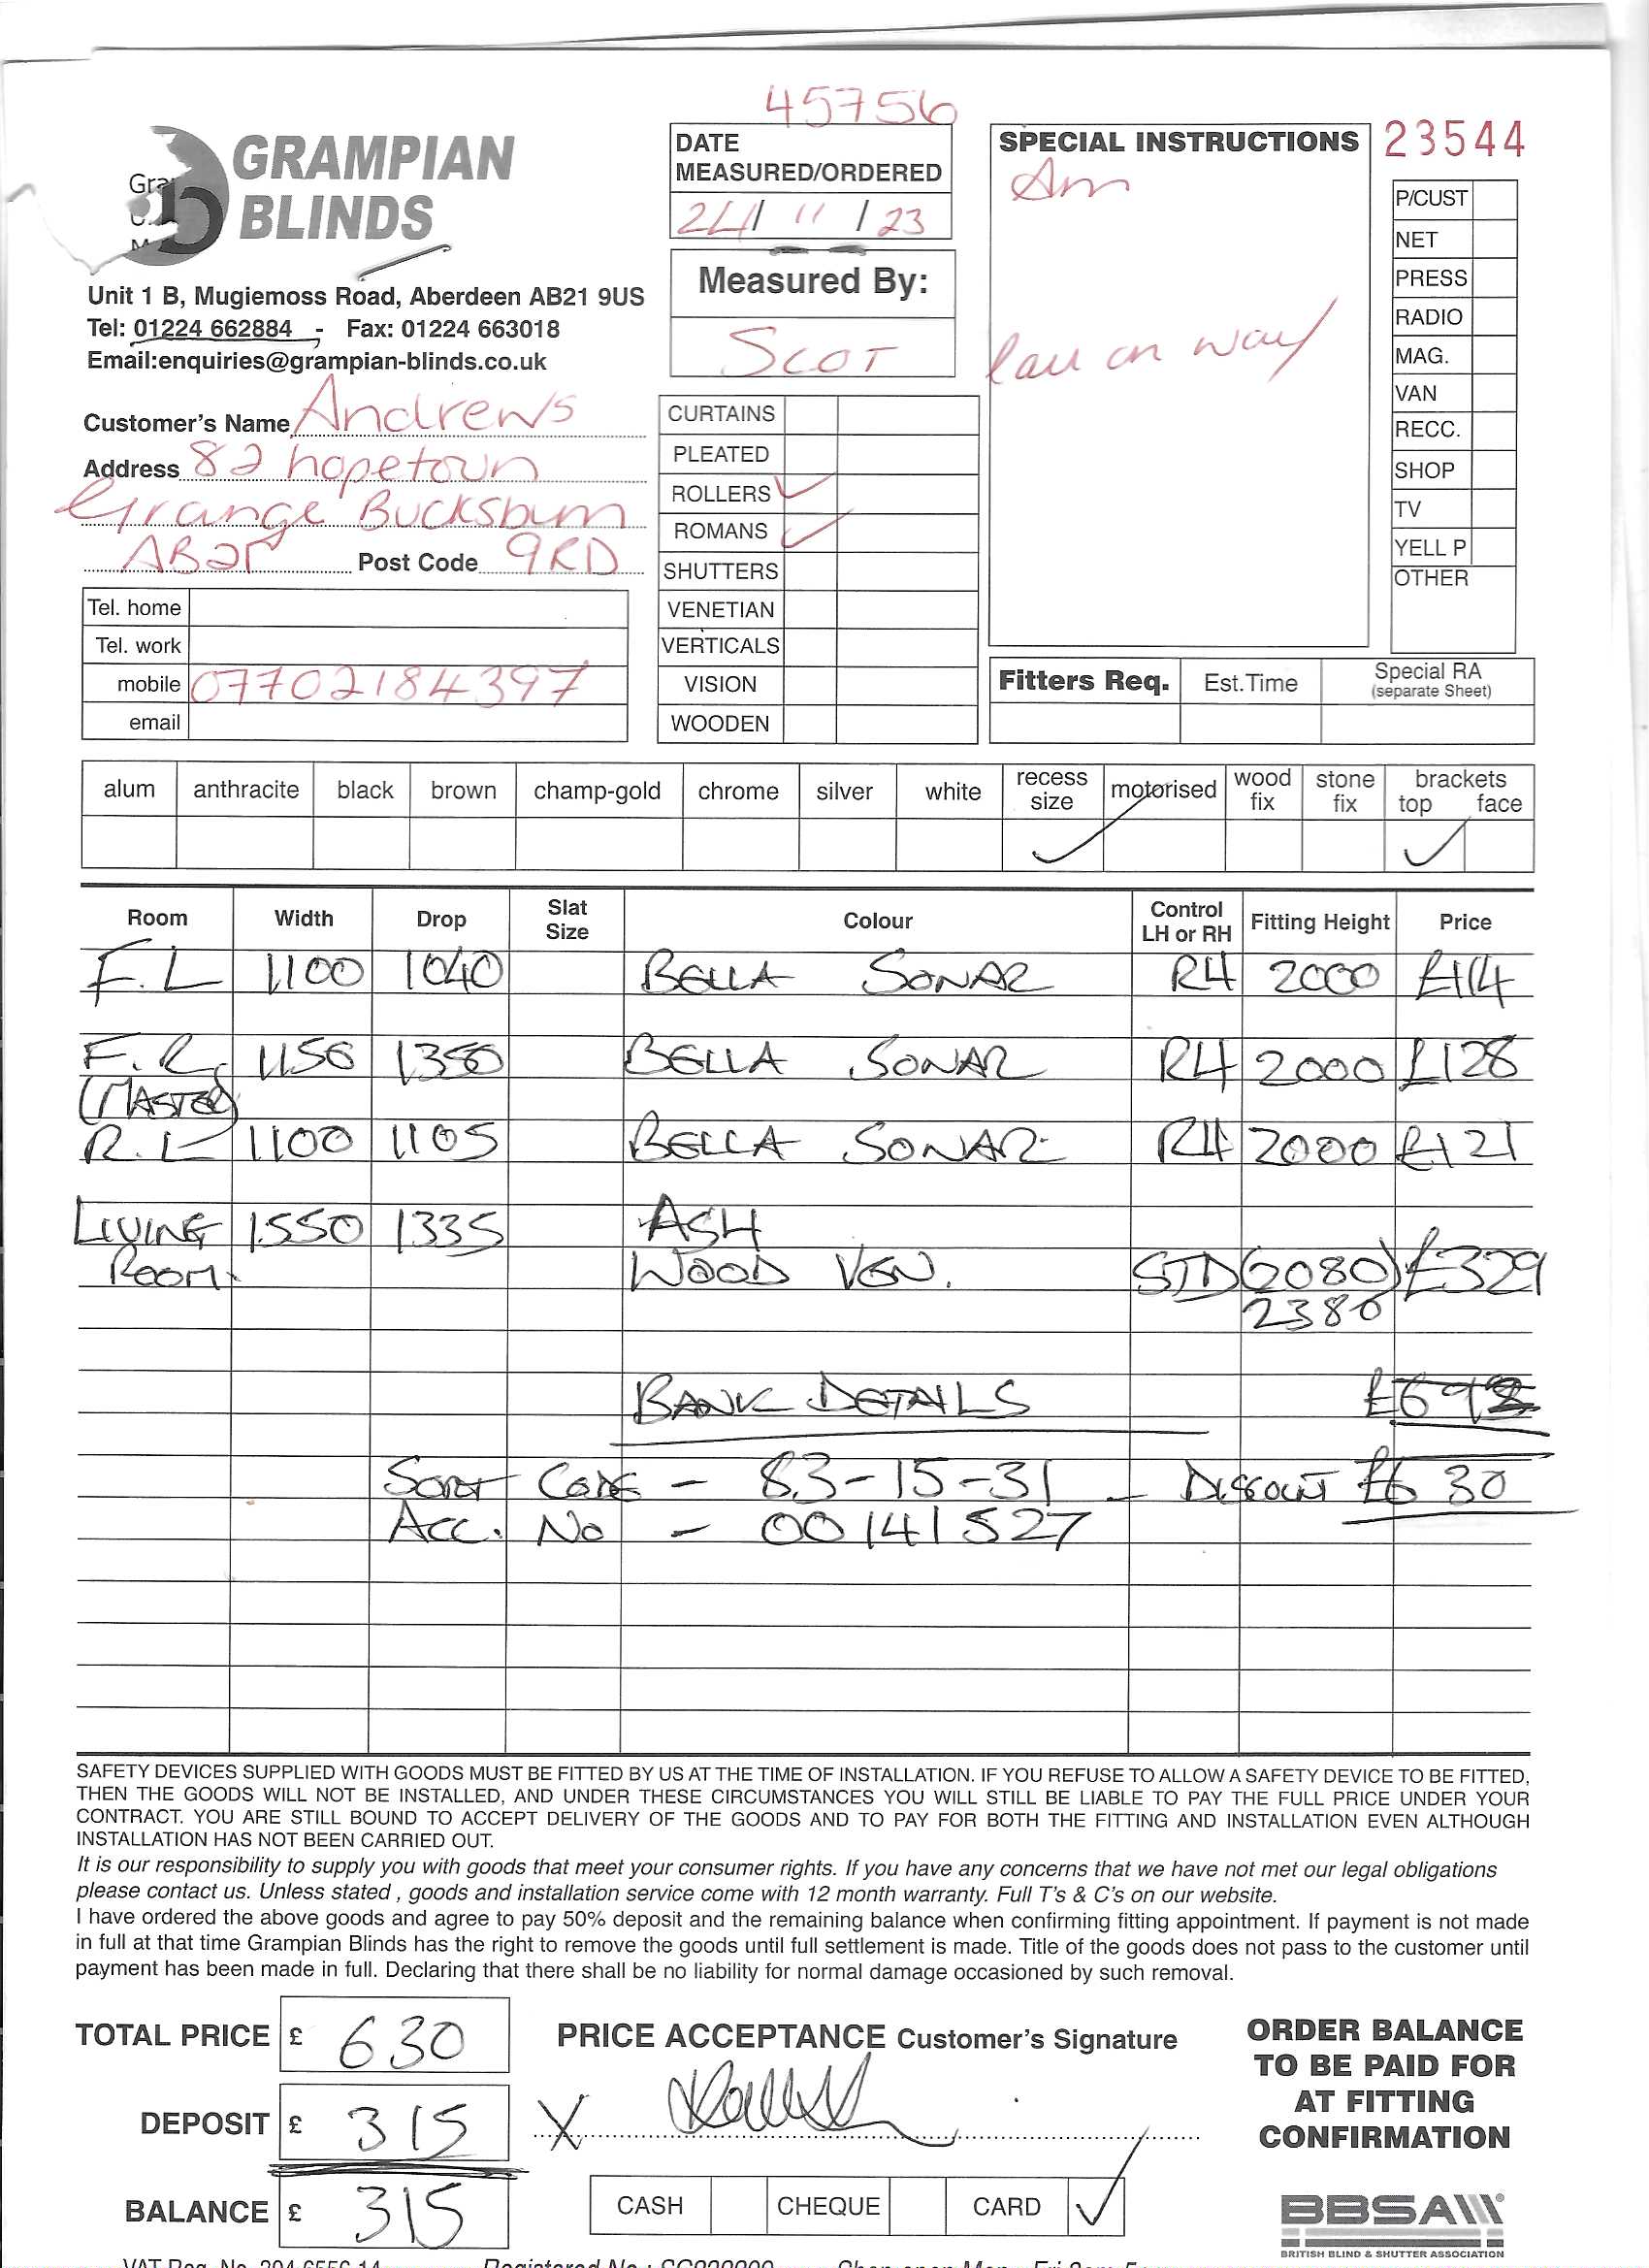 45756
GRAMPIAN
BLINDS
Unit 1 B, Mugiemoss Road, Aberdeen AB21 9US
Tel: 01224 662884 - Fax: 01224 663018
Email:enquiries@grampian-blinds.co.uk
Customer's Name Andrews
Address 82 hopetoun
Grange Bucksburn
AB21 Post Code 9RD
Tel. home
Tel. work
mobile 07702184397
email
DATE
MEASURED/ORDERED
24/ 11 / 23
Measured By:
SCOT
CURTAINS
PLEATED
ROLLERS ✓
ROMANS ✓
SHUTTERS
VENETIAN
VERTICALS
VISION
WOODEN
SPECIAL INSTRUCTIONS
Am
on way
23544
P/CUST
NET
PRESS
RADIO
MAG.
VAN
RECC.
SHOP
TV
YELL P
OTHER
Fitters Req. Est.Time Special RA
(separate Sheet)
alum anthracite black brown champ-gold chrome silver white recess size motorised wood fix stone fix brackets top face
✓ ✓
Room Width Drop Slat Size Colour Control LH or RH Fitting Height Price
F.L 1100 1040 BELLA SONAR RH 2000 £114
F.R. 1156 1350 BELLA SONAR RH 2000 £128
(MASTER)
R.L 1100 1105 BELLA SONAR RH 2000 £121
LIVING 1550 1335 ASH
ROOM WOOD VEN. STD (2080) £329
2380
BANK DETAILS £692
SORT CODE - 83-15-31 - DISCOUNT £630
ACC. No - 00141527
SAFETY DEVICES SUPPLIED WITH GOODS MUST BE FITTED BY US AT THE TIME OF INSTALLATION. IF YOU REFUSE TO ALLOW A SAFETY DEVICE TO BE FITTED,
THEN THE GOODS WILL NOT BE INSTALLED, AND UNDER THESE CIRCUMSTANCES YOU WILL STILL BE LIABLE TO PAY THE FULL PRICE UNDER YOUR
CONTRACT. YOU ARE STILL BOUND TO ACCEPT DELIVERY OF THE GOODS AND TO PAY FOR BOTH THE FITTING AND INSTALLATION EVEN ALTHOUGH
INSTALLATION HAS NOT BEEN CARRIED OUT.
It is our responsibility to supply you with goods that meet your consumer rights. If you have any concerns that we have not met our legal obligations
please contact us. Unless stated , goods and installation service come with 12 month warranty. Full T's & C's on our website.
I have ordered the above goods and agree to pay 50% deposit and the remaining balance when confirming fitting appointment. If payment is not made
in full at that time Grampian Blinds has the right to remove the goods until full settlement is made. Title of the goods does not pass to the customer until
payment has been made in full. Declaring that there shall be no liability for normal damage occasioned by such removal.
TOTAL PRICE £ 630
DEPOSIT £ 315
BALANCE £ 315
PRICE ACCEPTANCE Customer's Signature
X
CASH CHEQUE CARD ✓
ORDER BALANCE
TO BE PAID FOR
AT FITTING
CONFIRMATION
BBSA
BRITISH BLIND & SHUTTER ASSOCIATION